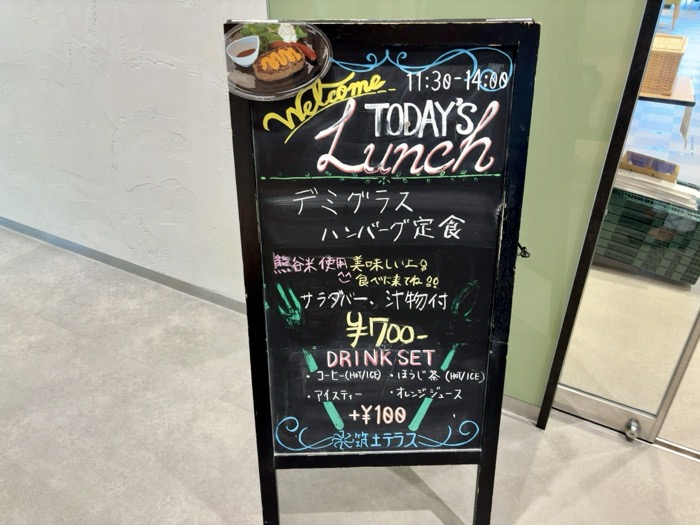 Welcome 11:30-14:00
TODAY'S
Lunch
デミグラス
ハンバーグ定食
熊谷米使用 美味しいよ!
食べに来てね!!
サラダバー、汁物付
¥700-
DRINK SET
・コーヒー(HOT/ICE) ・ほうじ茶(HOT/ICE)
・アイスティー ・オレンジジュース
+¥100
筑土テラス